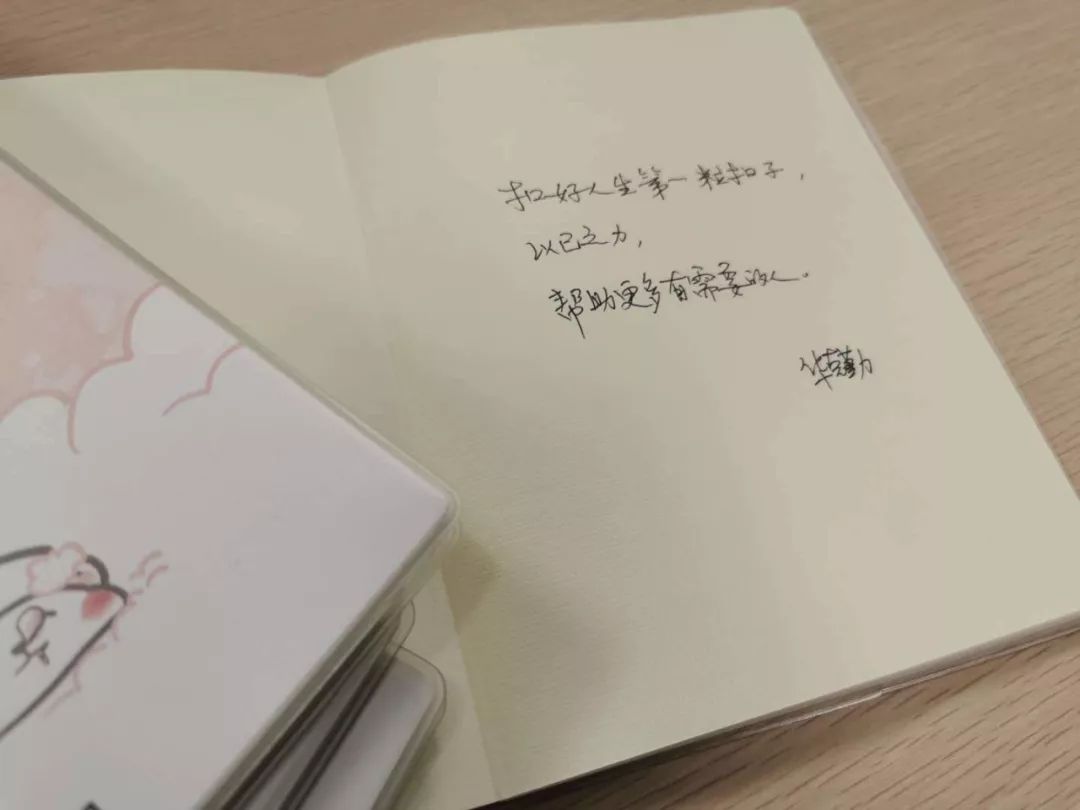 扣好人生第一粒扣子，
以己之力，
帮助更多有需要的人。
华勤